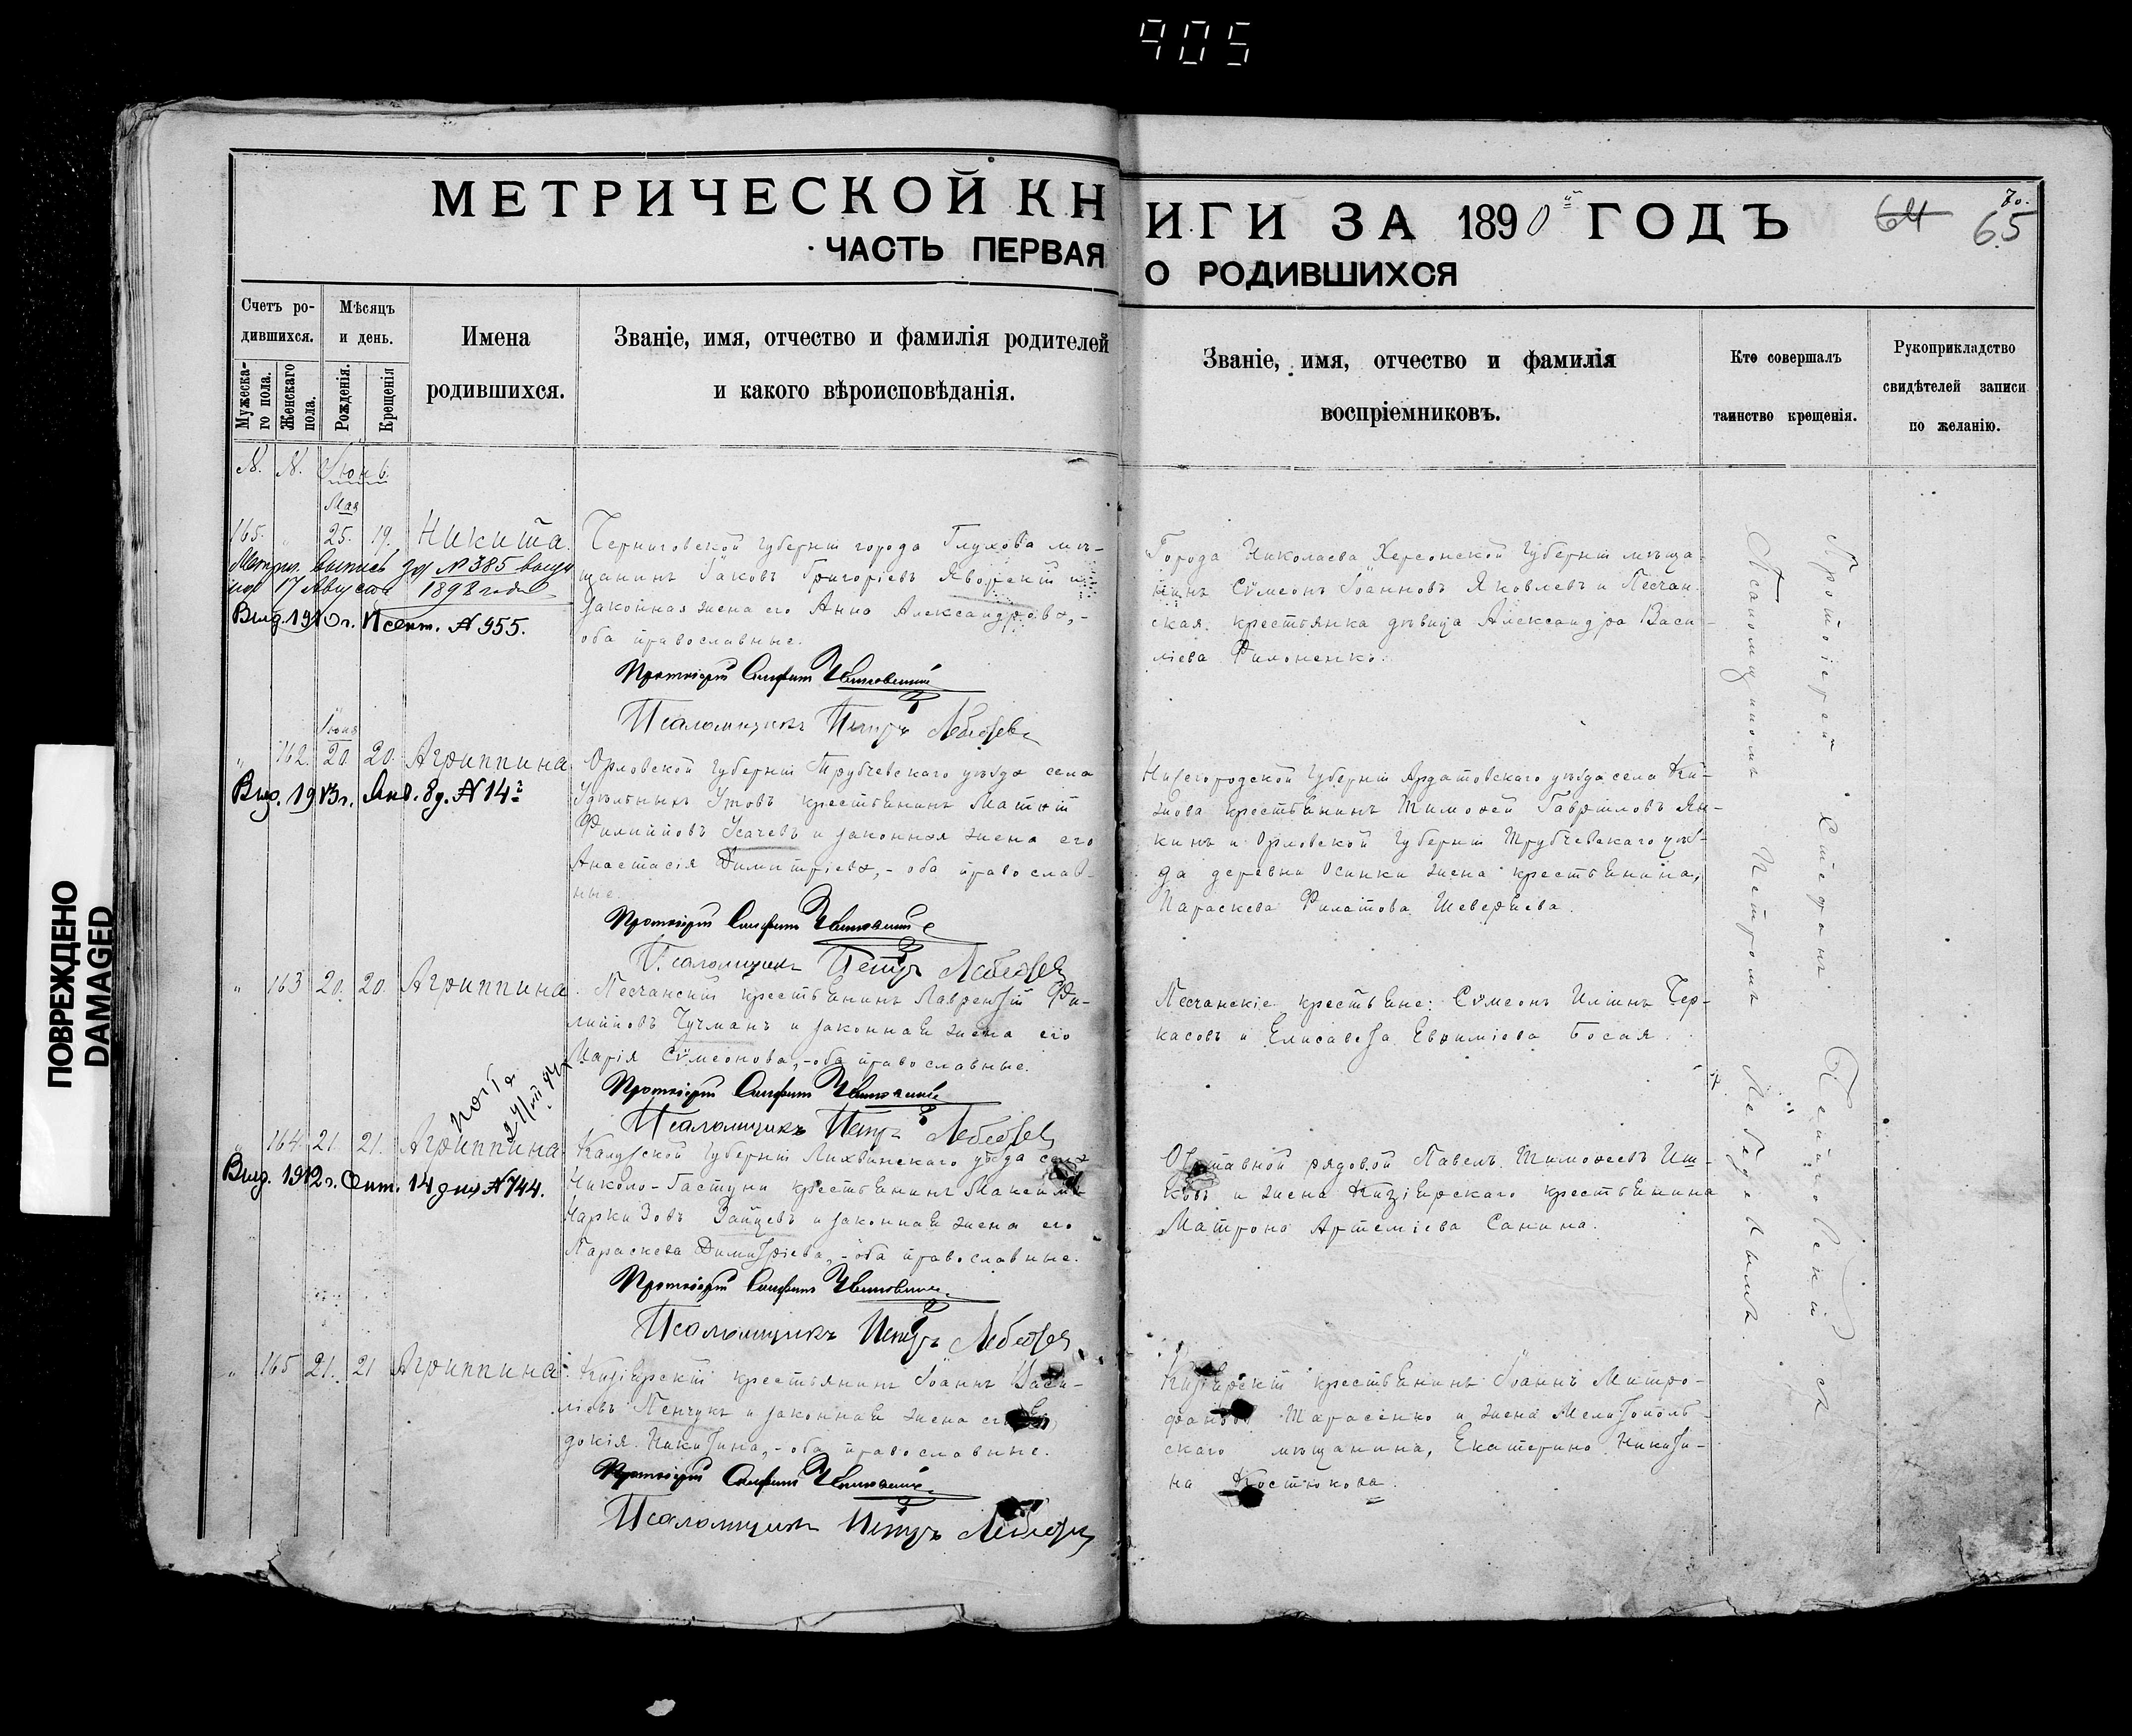 905
МЕТРИЧЕСКОЙ КНИГИ ЗА 1890й ГОДЪ
64
70.
65
ЧАСТЬ ПЕРВАЯ О РОДИВШИХСЯ
Счетъ ро-
дившихся.
Мужеска-
го пола.
Женскаго
пола.
Мѣсяцъ
и день.
Рожденія.
Крещенія
Имена
родившихся.
Званіе, имя, отчество и фамилія родителей
и какого вѣроисповѣданія.
Званіе, имя, отчество и фамилія
воспріемниковъ.
Кто совершалъ
таинство крещенія.
Рукоприкладство
свидѣтелей записи
по желанію.
N. N. Іюнь
Мая
165. " 25. 19. Никита.
Метрич. выпись за № 385 выда
на 17 Августа 1898 года
Выд. 1910 г. сент. № 955.
Черниговской губерніи города Глухова мѣ-
щанинъ Іаковъ Григоріевъ Яворскій и
законная жена его Анна Александрова,-
оба православные.
Протоіерей
Псаломщикъ Петръ Лебедевъ
Города Николаева Херсонской губерніи мѣща-
нинъ Сѵмеонъ Іоанновъ Яковлевъ и Песчан-
ская крестьянка дѣвица Александра Васи-
ліева Филоненко.
Іюня
" 162. 20. 20. Агриппина
Выд. 1913 г. Янв. 8 д. № 14
Орловской губерніи Трубчевскаго уѣзда села
Удѣльныхъ Утовъ крестьянинъ Матѳій
Филипповъ Усачевъ и законная жена его
Анастасія Димитріева,- оба православ-
ные.
Протоіерей
Псаломщикъ Петръ Лебедевъ
Нижегородской губерніи Ардатовскаго уѣзда села Ки-
жова крестьянинъ Тимоѳей Гавріиловъ Ян-
кинъ и Орловской губерніи Трубчевскаго уѣз-
да деревни Осинки жена крестьянина,
Параскева Филатова Шеверяева.
" 163 20. 20. Агриппина.
Песчанскій крестьянинъ Лаврентій Фи-
липповъ Чучманъ и законная жена его
Марія Сѵмеонова,-оба православные.
Протоіерей
Псаломщикъ Петръ Лебедевъ
Песчанскіе крестьяне: Сѵмеонъ Илiинъ Чер-
касовъ и Елисавета Евѳиміева Босая.
" 164 21. 21. Агриппина
Выд. 1912 г. Сент. 14 дня № 744.
Калужской губерніи Лихвинскаго уѣзда села
Николо-Гастуни крестьянинъ Максимъ
Наркизовъ Зайцевъ и законная жена его
Параскева Димитріева,-оба православные.
Протоіерей
Псаломщикъ Петръ Лебедевъ
Отставной рядовой Павелъ Тимоѳеевъ Иш-
ковъ и жена Кизіярскаго крестьянина
Матрона Артеміева Санина.
" 165 21. 21 Агриппина
Кизіярскій крестьянинъ Іоаннъ Васи-
ліевъ Пенчукъ и законная жена его Ев-
докія Никитина,-оба православные.
Протоіерей
Псаломщикъ Петръ Лебедевъ
Кизіярскій крестьянинъ Іоаннъ Митро-
фановъ Тарасенко и жена Мелитополь-
скаго мѣщанина, Екатерина Никити-
на Костюкова.
Протоіерей Стефанъ
Псаломщикомъ Петромъ Лебедевымъ.
ПОВРЕЖДЕНО
DAMAGED